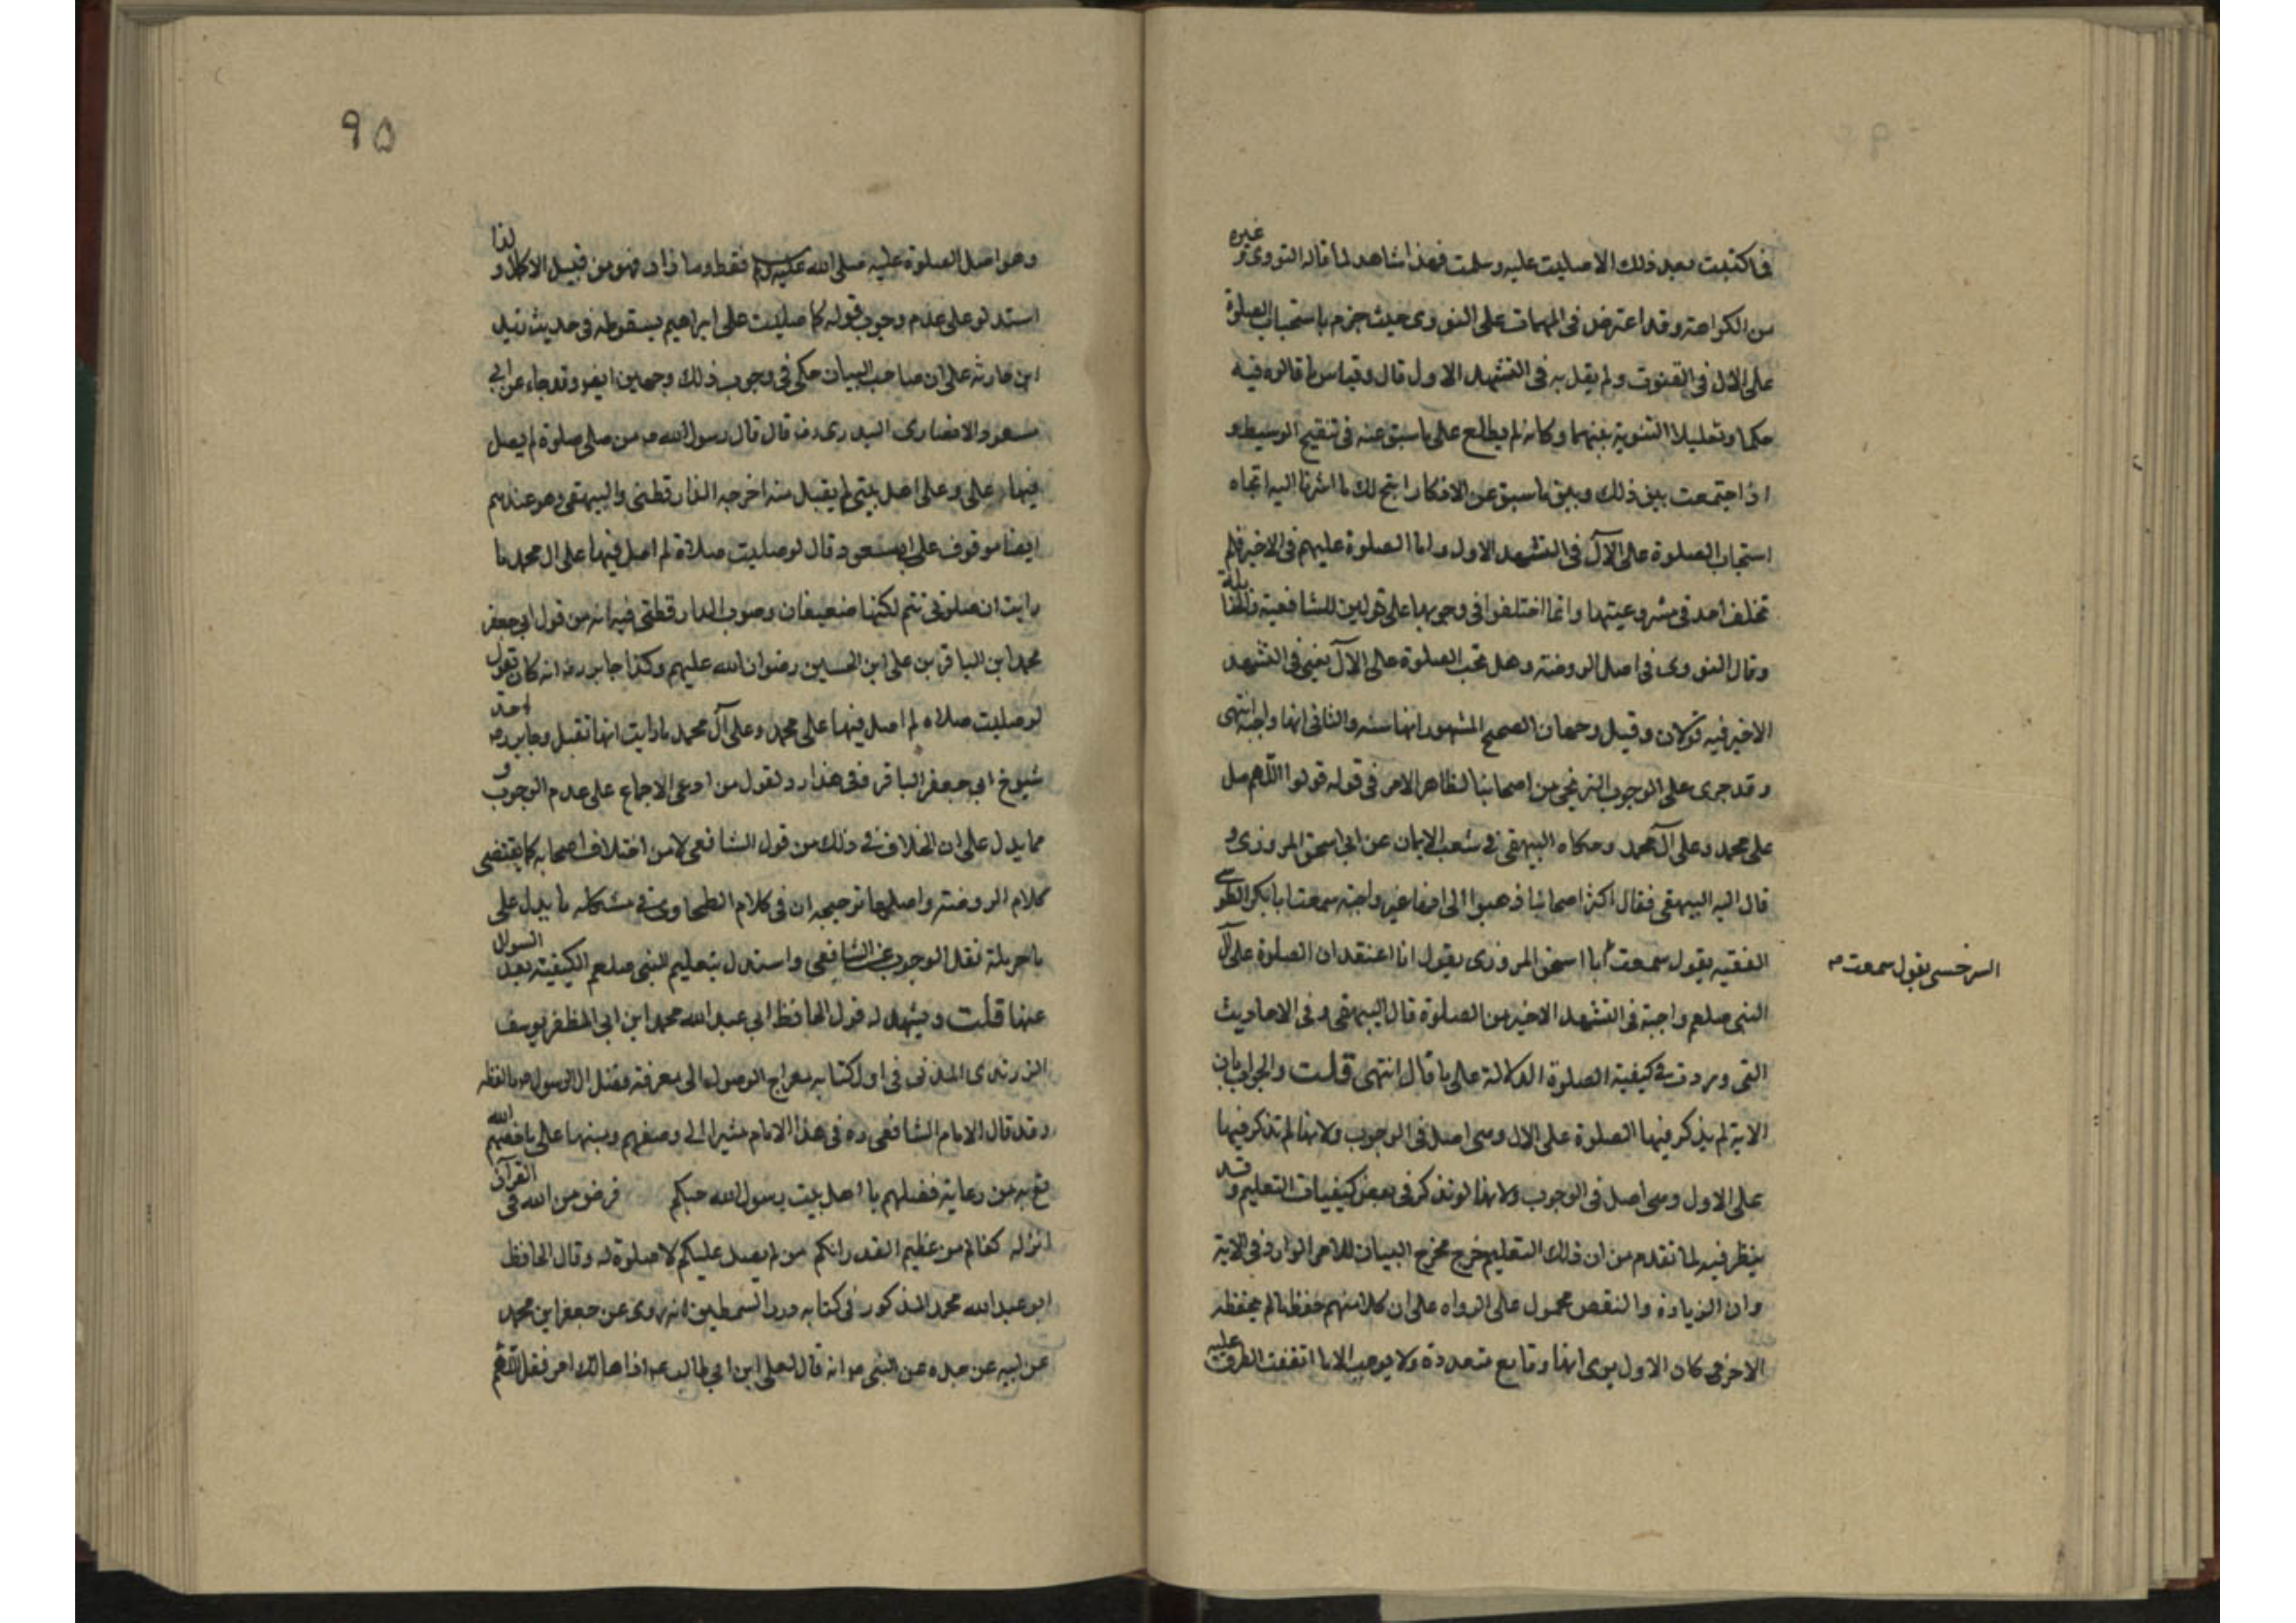 فما كتبت بعد ذلك الا صليت عليه وسلمت فهذا شاهد لما قاله النووي و غيره
من الكراهة وقد اعترض في المهمات على النووي حيث جزم باستحباب الصلوة
على الال في القنوت ولم يقل به في التشهد الاول قال وقياس ما قالوه فيه
حكما وتعليلا التسوية بينهما وكانه لم يطلع على ما سبق عنه في تنقيح الوسيط و
اذا جتمعت بين ذلك وبين ما سبق عن الاذكار اتجح لك ما اشرنا اليه اتجاه
استحباب الصلوة على الآل في التشهد الاول واما الصلوة عليهم في الاخير فلم
تخلف احد في مشروعيتها وانما اختلفوا في وجوبها على قولين للشافعية والحنا بلة
وقال النووي في اصل الروضة وهل تجب الصلوة على الآل يعني في التشهد
الاخير فيه قولان وقيل وجهان الصحيح المشهور انها سنه والثاني انها واجبة انتهى
وقد جرى على الوجوب الترنجي من اصحابنا لظاهر الامر في قوله قولوا اللهم صل
على محمد وعلى آل محمد وحكاه البيهقي في شعب الايمان عن ابي اسحق المروزي و
قال اليه البيهقي فقال اكثر اصحابنا ذهبوا الى انها غير واجبة سمعت ابا بكر الطو سي
الفقيه يقول سمعت ابا اسحق المروزي يقول انا اعتقد ان الصلوة على آل
السرخسي يقول سمعت صح
النبي صلعم واجبة في التشهد الاخير من الصلوة قال البيهقي وفي الاحاديث
التي وردت في كيفية الصلوة الدلالة على ما قال انتهى قلت والجواب بان
الاية لم يذكر فيها الصلوة على الال وهي اصل في الوجوب ولانها لم تذكر فيها
على الاول وهي اصل في الوجوب ولانها لو تذكر في بعض كيفيات التعليم و قد
ينظر فيه لما تقدم من ان ذلك التعليم خرج مخرج البيان للامر الوارد في الاية
وان الزيادة والنقص محمول على الرواه على ان كلا منهم حفظ ما لم يحفظه
الاخر في كان الاول يرى انها وقايع متعددة ولا يوجب الا ما اتفقت الطرق عليه
٩٥
وهو اصل الصلوة عليه صلى الله عليه وسلم فقط وما زاد فهو من قبيل الاكمال و لذا
استدلو على عدم وجوب قوله كما صليت على ابراهيم بسقوطه في حديث زيد
ابن خارثه على ان صاحب البيان حكى في وجوب ذلك وجهين ايضو وقد جاء عن ابي
مسعود الانصاري البدري رض قال قال رسول الله ص من صلى صلوة لم يصل
فيها على وعلى اهل بيتي لم يقبل منه اخرجه الدارقطني والبيهقي وهو عندهم
ايضا موقوف على ابي مسعود قال لو صليت صلاة لم اصل فيها على ال محمد ما
رايت ان صلوتي تتم لكنها ضعيفان وصوب الدارقطني فيه انه من قول ابي جعفر
محمد ابن الباقر بن علي ابن الحسين رضوان الله عليهم وكذا جابر رض انه كان يقول
لو صليت صلاه لم اصل فيها على محمد وعلى آل محمد ما رايت انها تقبل وجابر رض احد
شيوخ ابي جعفر الباقر ففي هذا رد لقول من ادعى الاجماع على عدم الوجوب و
مما يدل على ان الخلاف في ذلك من قول الشافعي لا من اختلاف اصحابه كما يقتضي
كلام الروضة واصلها ترجيحه ان في كلام الطحاوي في مشكله ما يدل على
ان حرملة نقل الوجوب عن الشافعي واستدل بتعليم النبي صلعم الكيفية بعد السوال
عنها قلت ويشهد له قول الحافظ ابي عبدالله محمد ابن ابي المظفر يوسف
الزرندى المدني في اول كتابه معراج الوصول الى معرفة فضل ال الرسول ص ما لفظه
وقد قال الامام الشافعي ره في هذا الامام مشيرا الى وصفهم ومنبها على ما خصهم الله
تع به من رعاية فضلهم يا اهل بيت رسول الله حبكم فرض من الله في القرآن
انزله كفاكم من عظيم القدر انكم من لم يصل عليكم لا صلوة له وقال الحافظ
ابو عبدالله محمد المذكور في كتابه درر السمطين انه روى عن جعفر ابن محمد
عن ابيه عن جده عن النبي ص انه قال لعلي ابن ابي طالب ع اذا هالك امر فقل اللهم